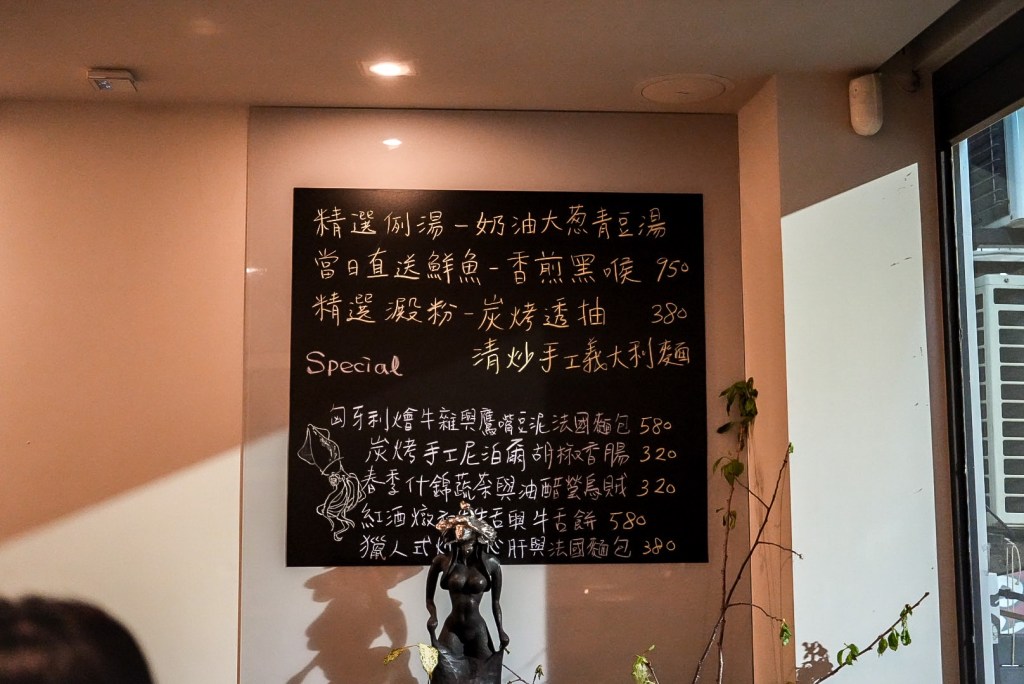 精選例湯-奶油大葱青豆湯
當日直送鮮魚-香煎黑喉 950
精選澱粉-炭烤透抽 380
清炒手工義大利麵
Special
匈牙利燴牛雜與鷹嘴豆泥法國麵包 580
炭烤手工尼泊爾胡椒香腸 320
春季什錦蔬菜與油醋螢烏賊 320
紅酒燉 牛舌與牛舌餅 580
獵人式炒 肝與法國麵包 380